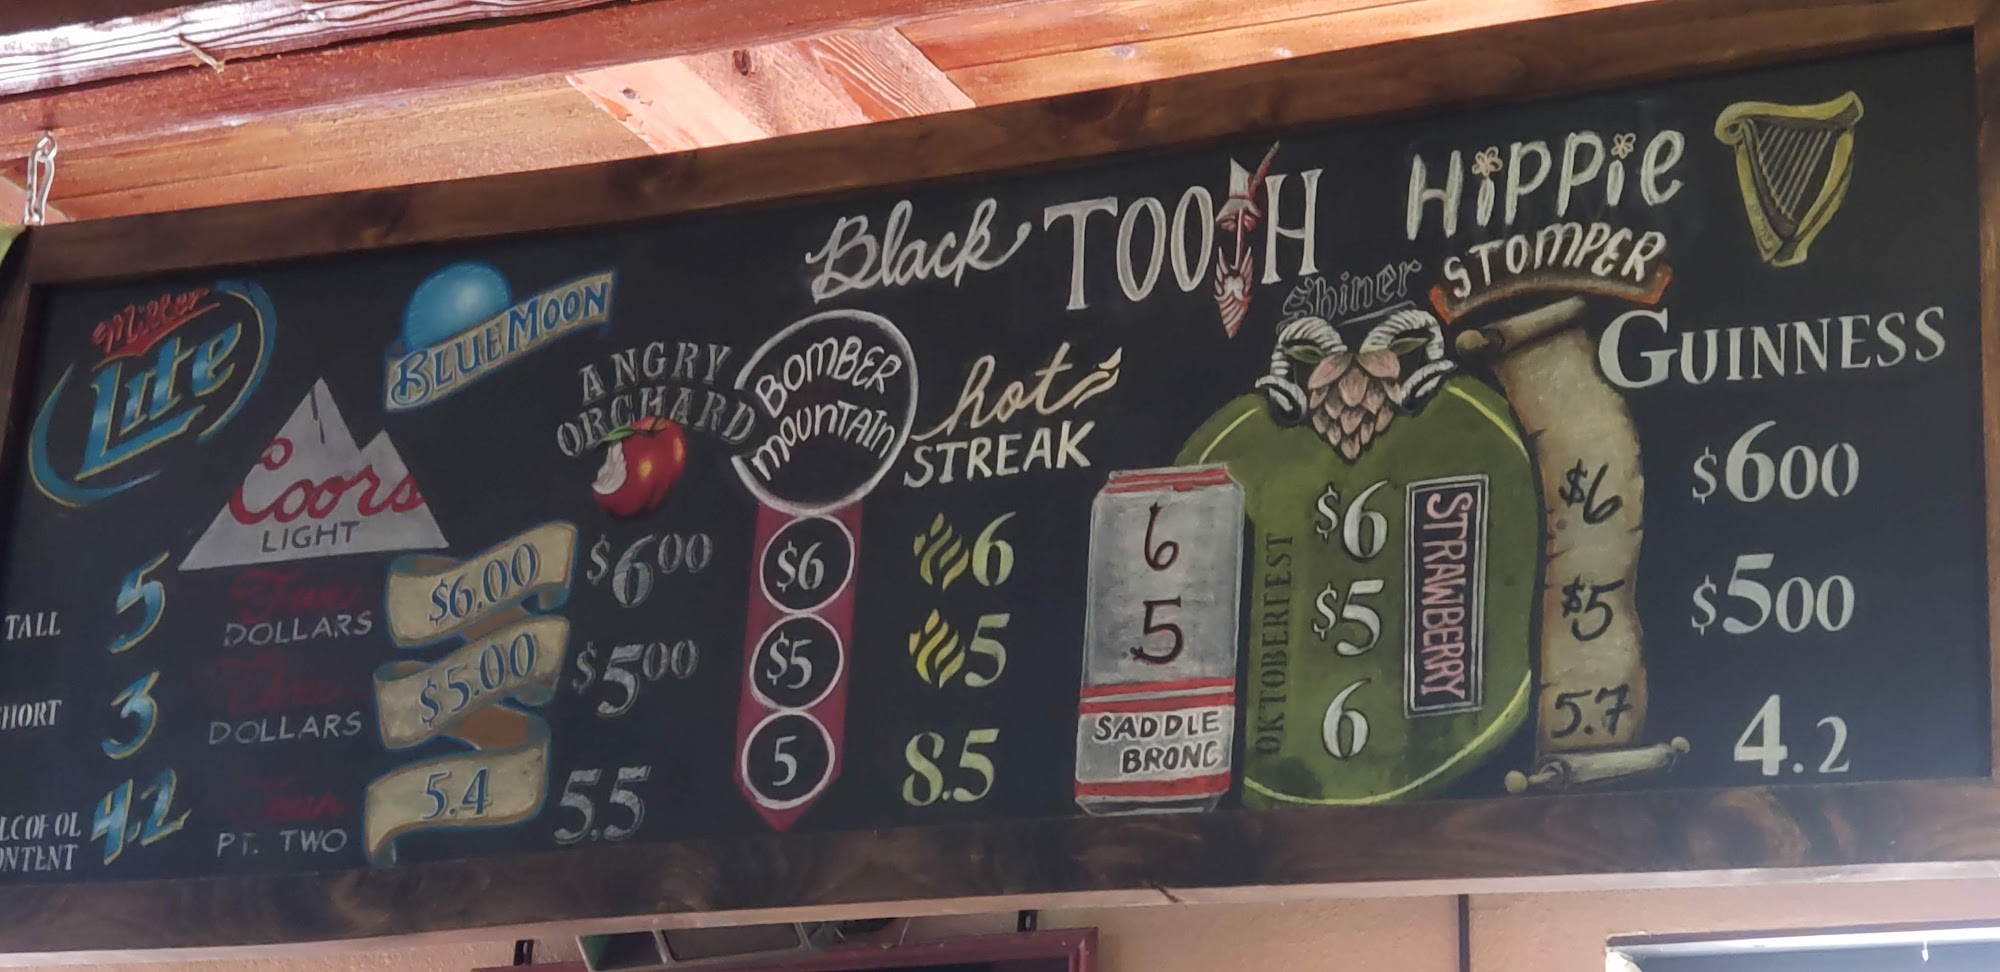 Miller
Lite
Coors
LIGHT
BLUE MOON
ANGRY
ORCHARD
BOMBER
MOUNTAIN
Black TOOTH
hot
STREAK
Shiner
HiPPie
STOMPER
GUINNESS
TALL
5
Five
DOLLARS
$6.00
$6 00
$6
6
6
$6
$6
$600
HORT
3
Three
DOLLARS
$5.00
$5 00
$5
5
5
$5
$5
$500
LCOFOL
ONTENT
4.2
Four
PT. TWO
5.4
5.5
5
8.5
SADDLE
BRONC
OKTOBERFEST
6
STRAWBERRY
5.7
4.2